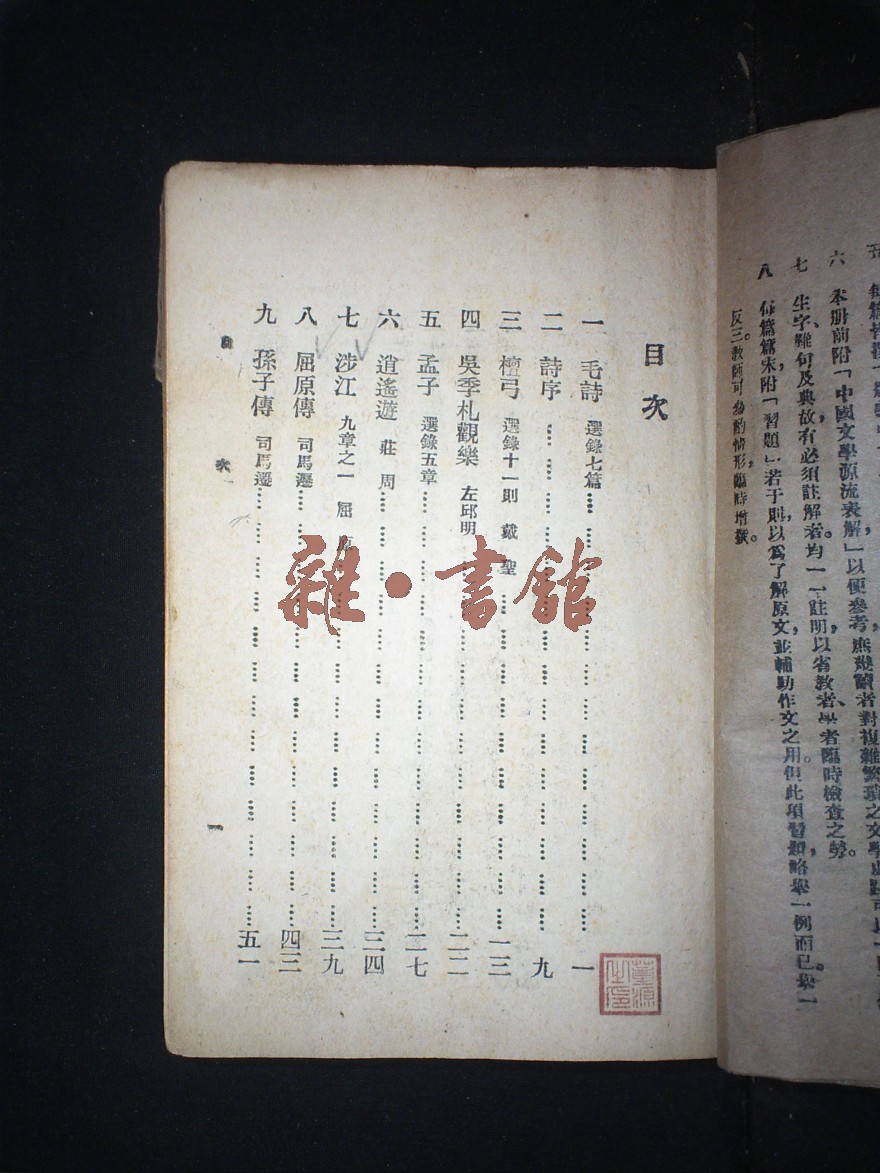 五
六 本册前附「中國文學源流表解」以便參考，庶幾讀者對複雜繁瑣之文學
七 生字、難句及典故有必須註解者，均一一註明，以省教者、學者臨時檢查之勞。
八 每篇篇末，附「習題」若干則，以爲了解原文並輔助作文之用。但此項習題，略舉一例而已。舉一
反三，教師可參酌情形，臨時增損。
目次
一 毛詩 選錄七篇 一
二 詩序 九
三 檀弓 選錄十一則 戴聖 一三
四 吳季札觀樂 左邱明 二二
五 孟子 選錄五章 二七
六 逍遙遊 莊周 三四
七 涉江 九章之一 屈原 三九
八 屈原傳 司馬遷 四三
九 孫子傳 司馬遷 五一
目 次
一
雜·書館
董源之印